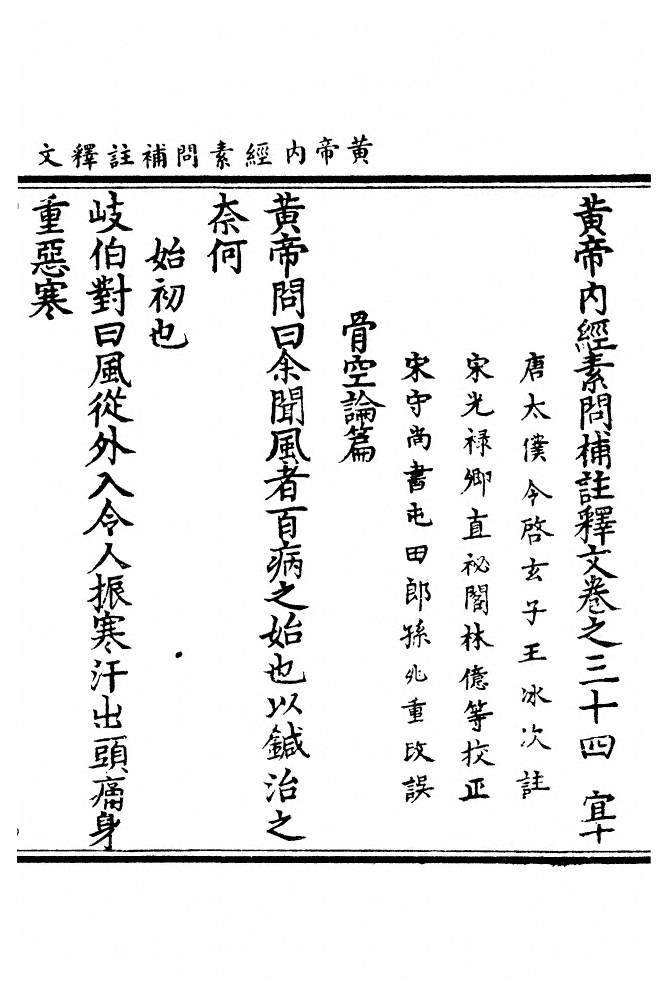 黄帝內經素問補註釋文
黄帝內經素問補註釋文卷之三十四 宜十
唐太僕令啓玄子王冰次註
宋光禄卿直祕閣林億等校正
宋守尚書屯田郎孫兆重改誤
骨空論篇
黄帝問曰余聞風者百病之始也以鍼治之
柰何
始初也
岐伯對曰風從外入令人振寒汗出頭痛身
重惡寒